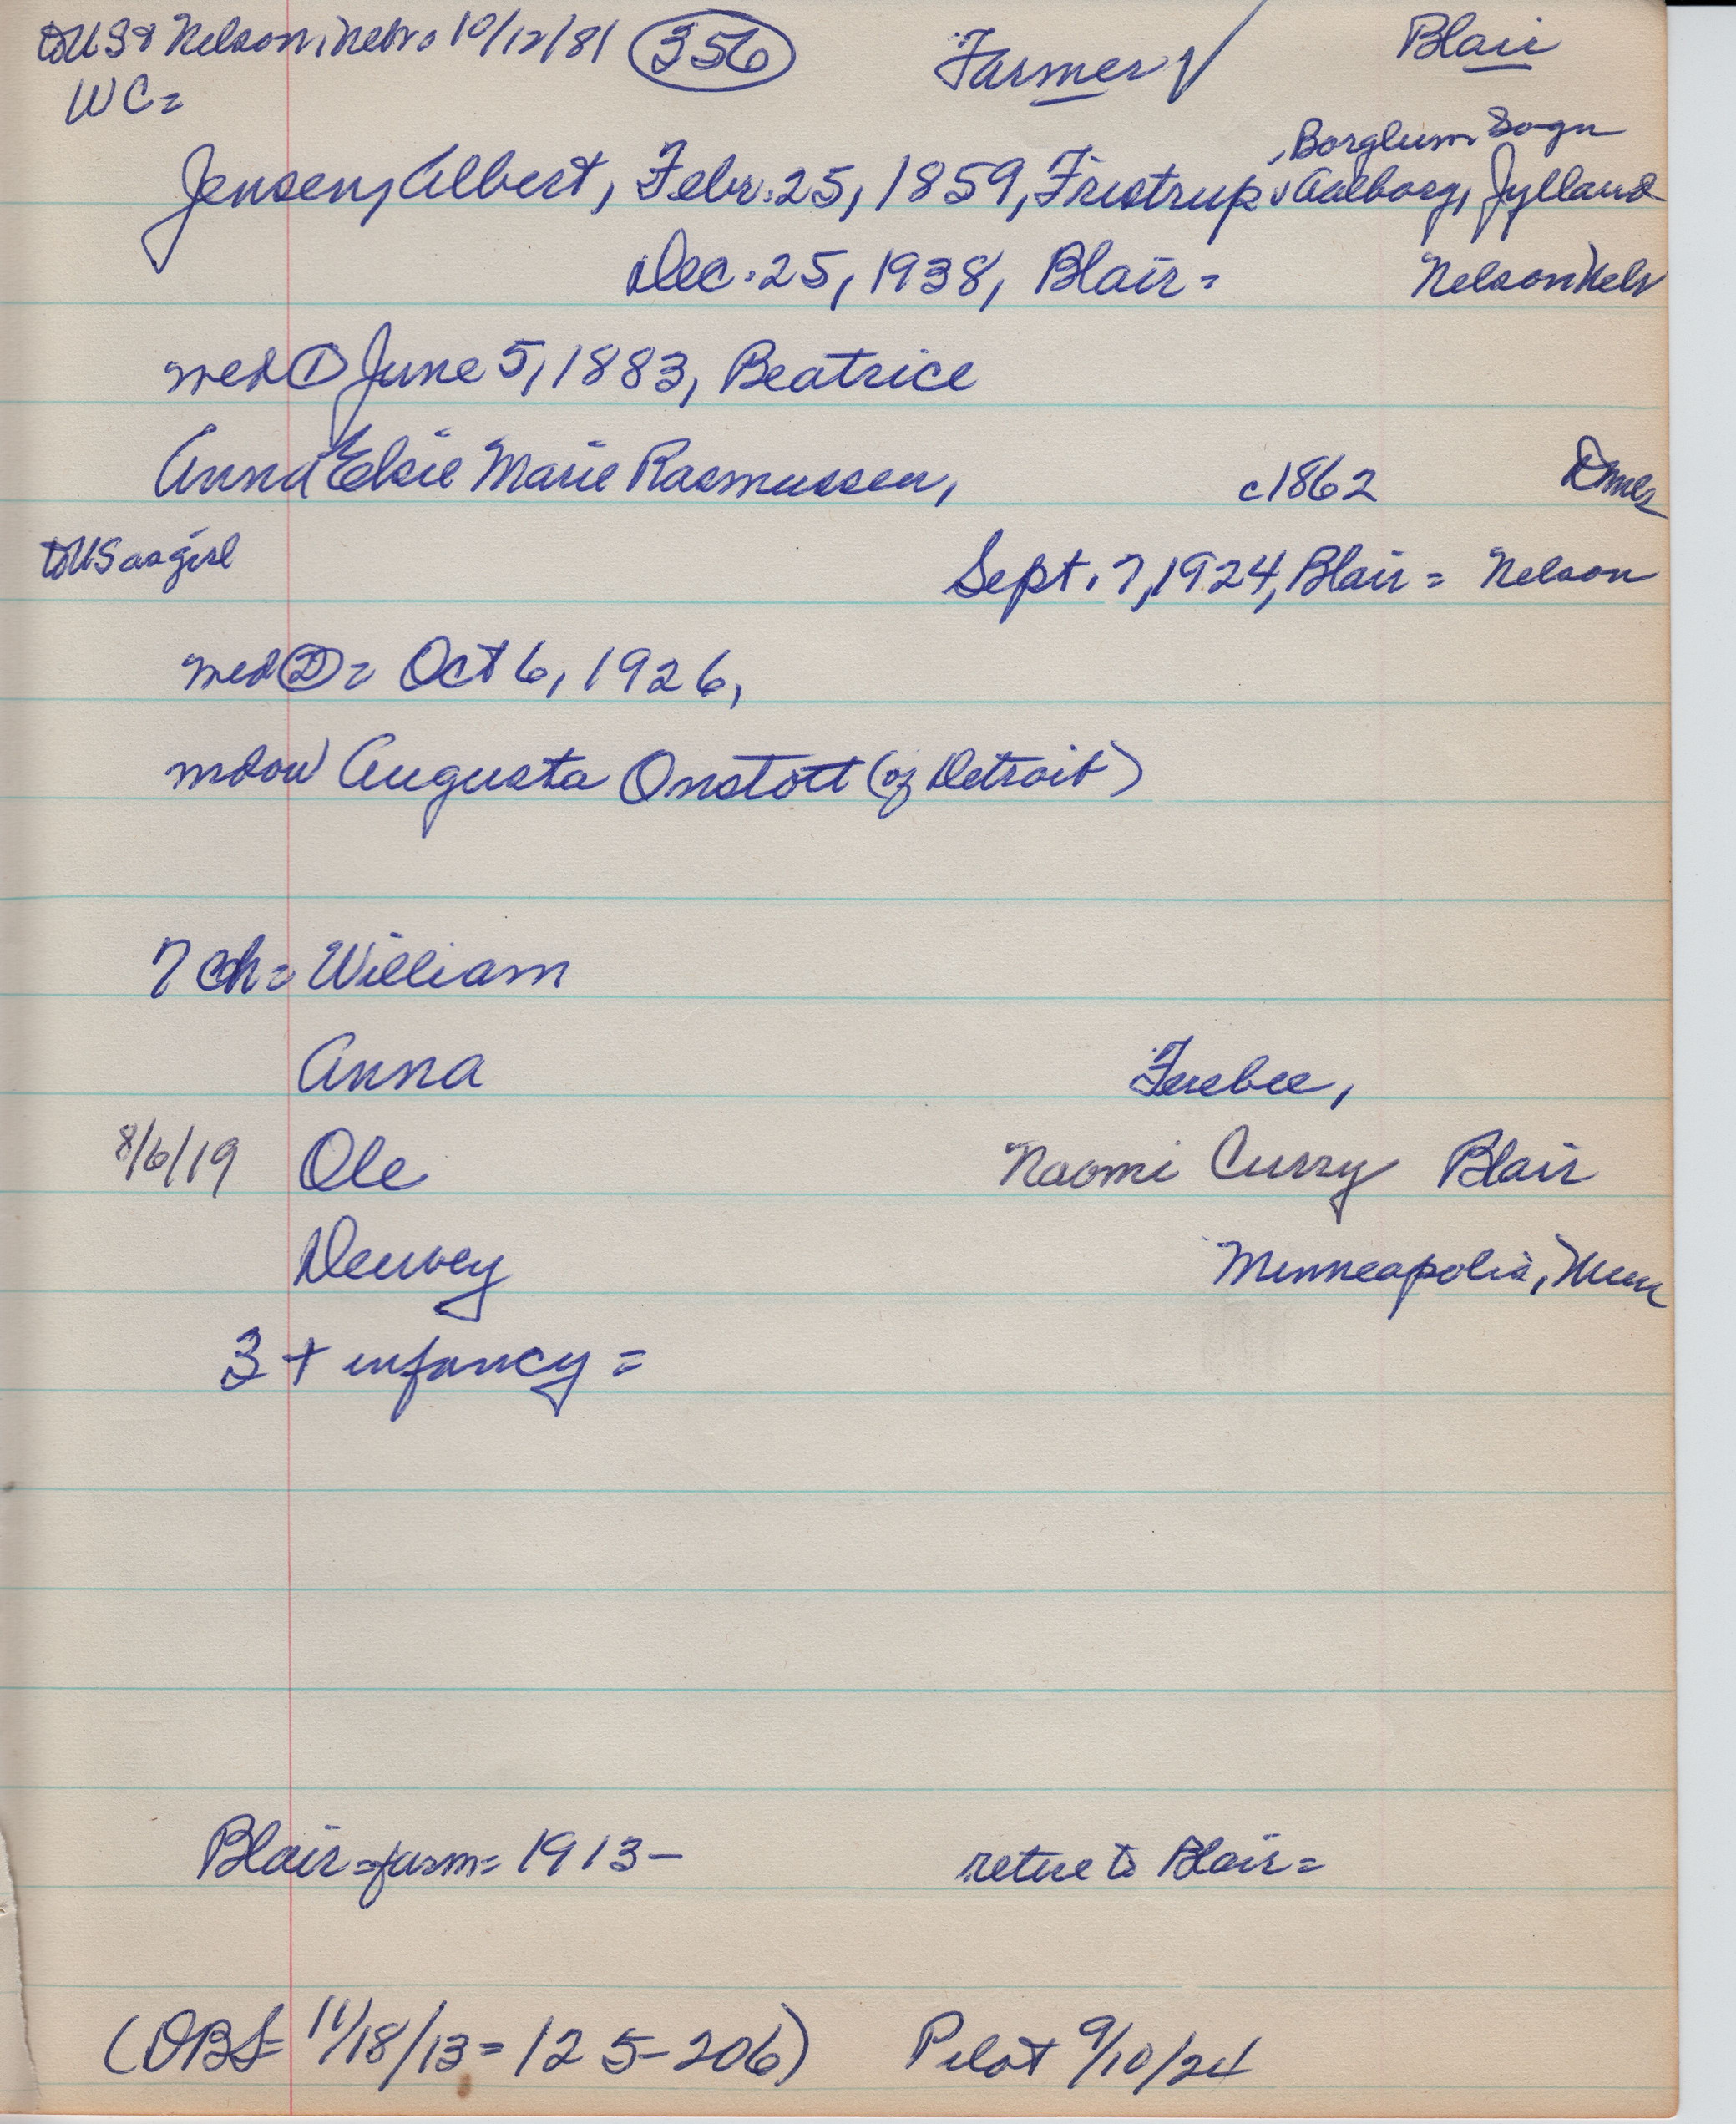 to US & Nelson, Nebr. 10/12/81 356 Farmer ✓ Blair
WC =
, Borglum Sogn
Jensen, Albert, Febr. 25, 1859, Fristrup, Aalborg, Jylland
Dec. 25, 1938, Blair = Nelson Nebr
med ① June 5, 1883, Beatrice
Anna Elsie Marie Rasmussen, c1862
to US as girl Sept. 7, 1924, Blair = Nelson
med ② = Oct 6, 1926,
Augusta Onstott (of Detroit)
7 ch = William
Anna Ferebee,
8/6/19 Ole Naomi Curry Blair
Dewey Minneapolis, Minn
3 + infancy =
Blair = farm = 1913 – retire to Blair =
(DBS= 11/18/13 = 125-206) Pilot 9/10/24